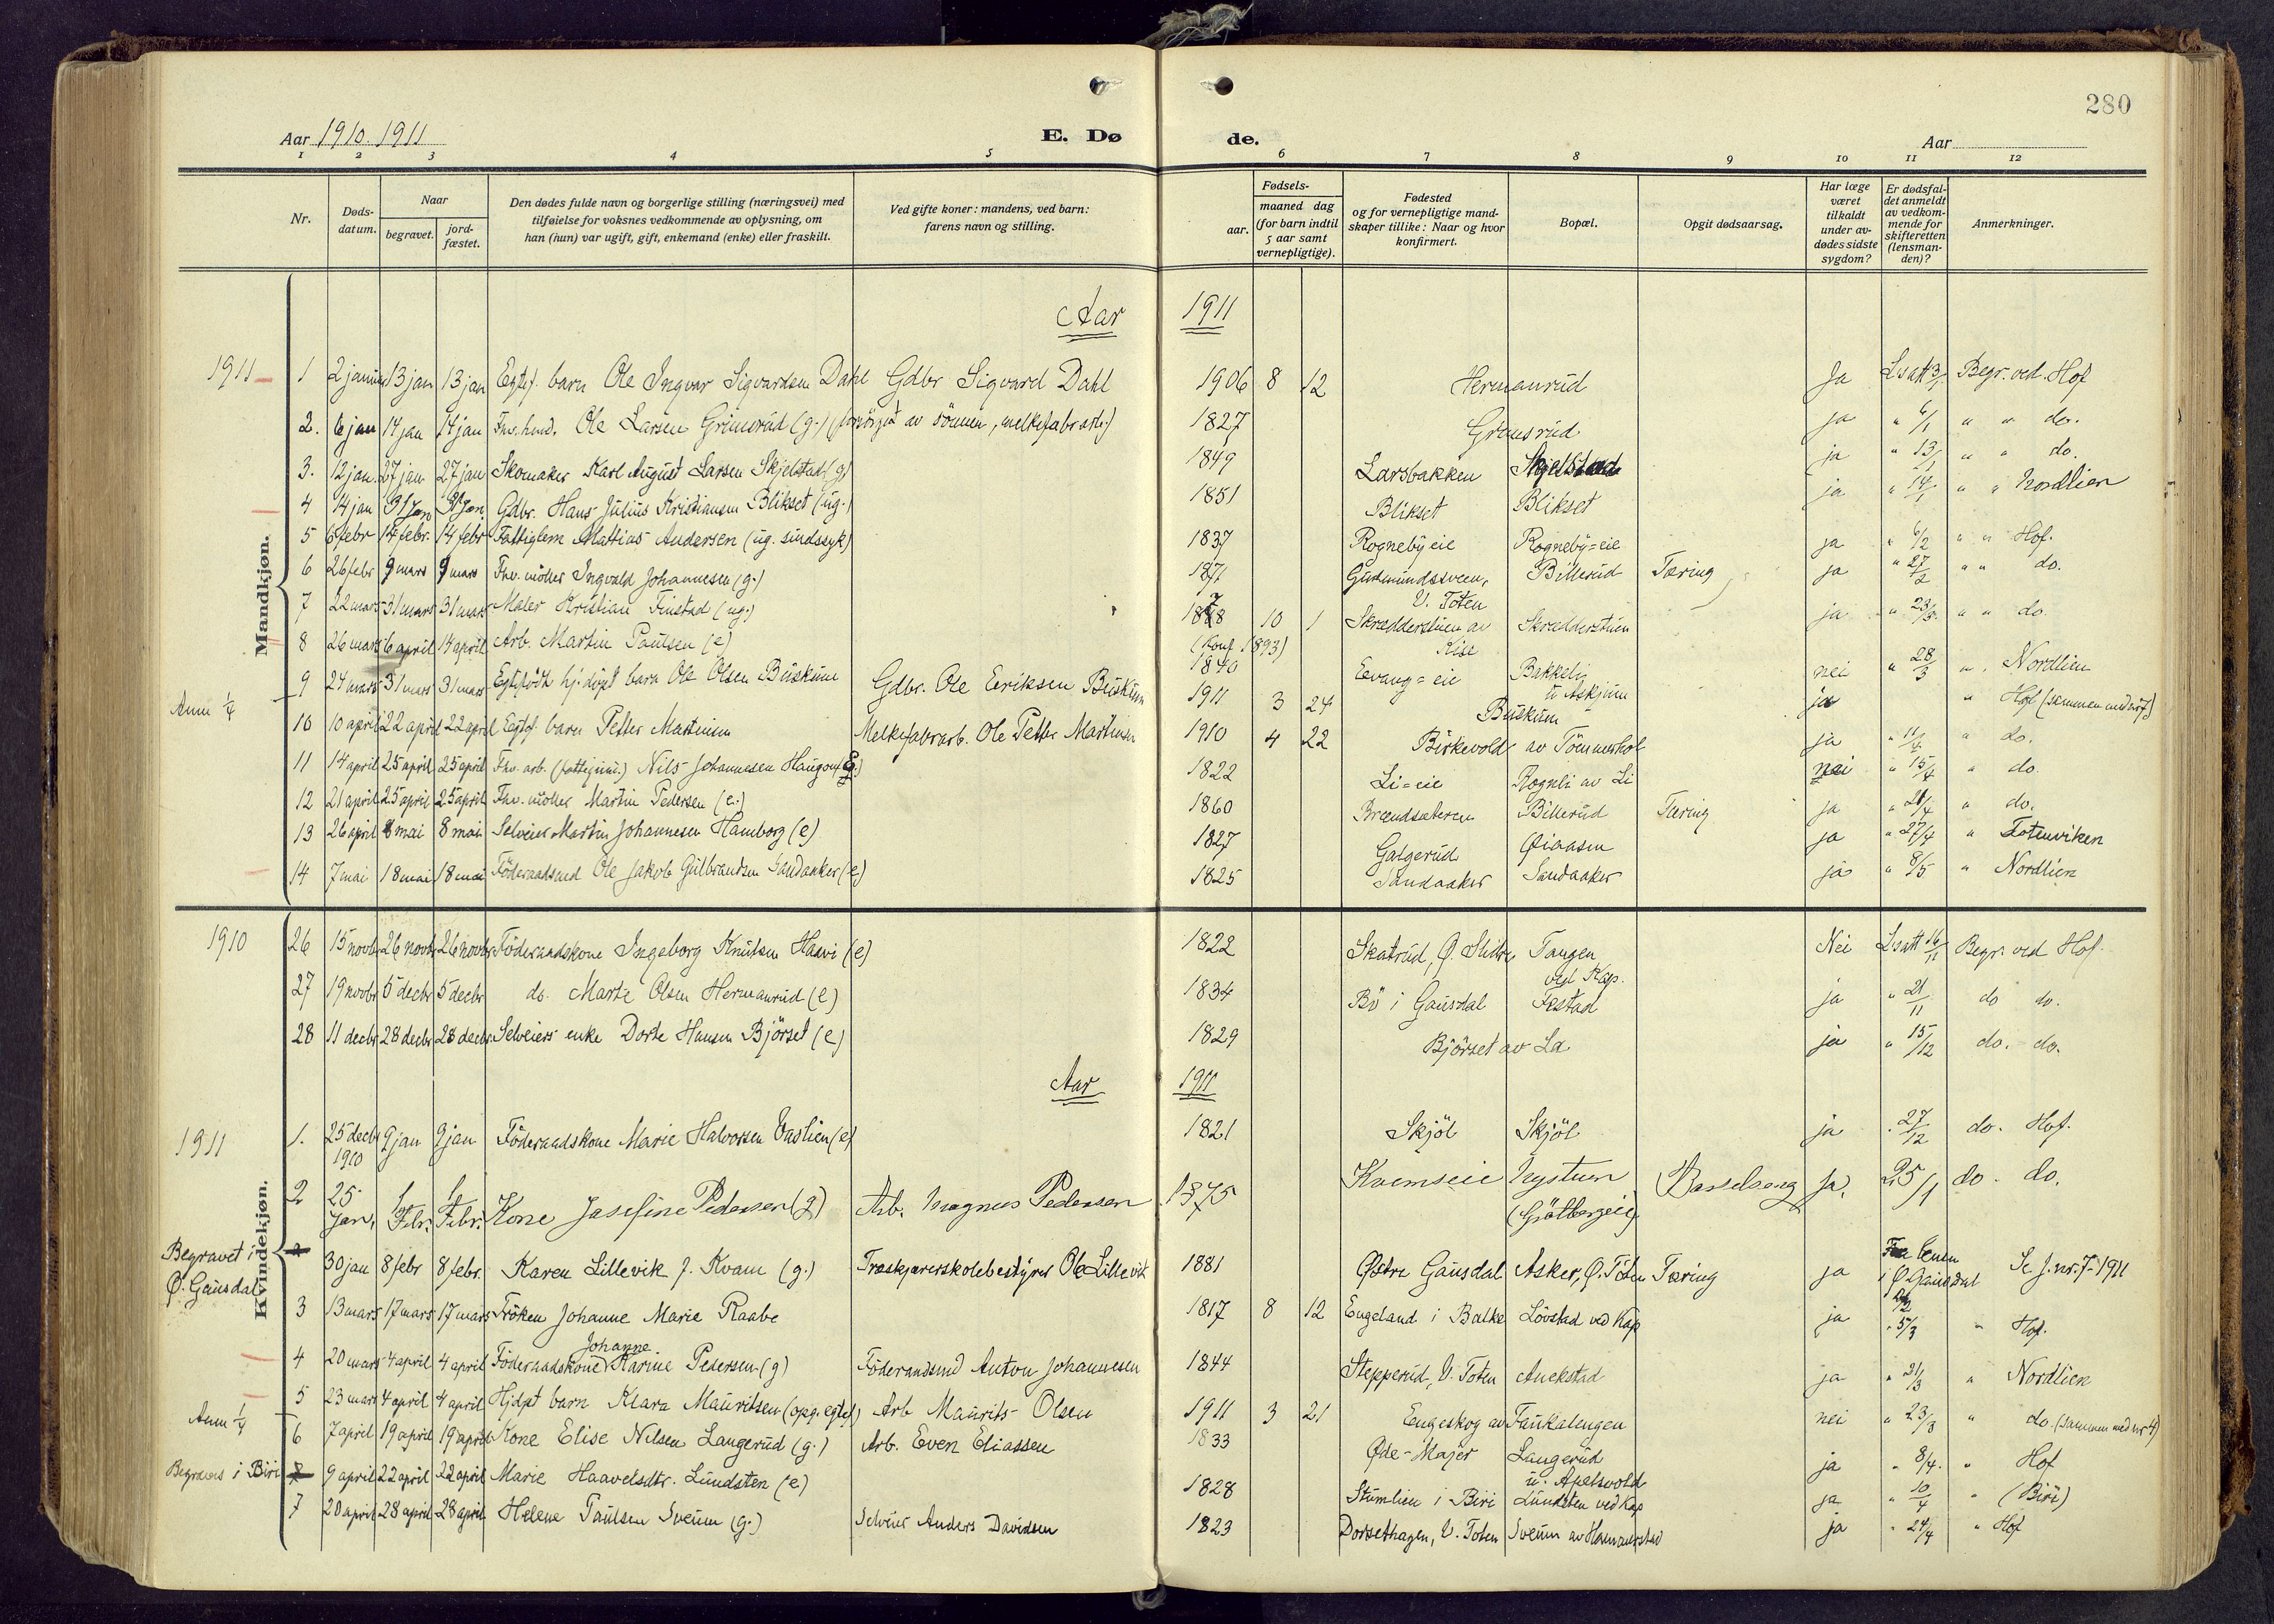 280
Aar 1910. 1911
E. Dø
de.
Aar
1 2 3 4 5 6 7 8 9 10 11 12
Nr.
Døds-
datum.
Naar
begravet.
jord-
fæstet.
Den dødes fulde navn og borgerlige stilling (næringsvei) med
tilføielse for voksnes vedkommende av oplysning, om
han (hun) var ugift, gift, enkemand (enke) eller fraskilt.
Ved gifte koner: mandens, ved barn:
farens navn og stilling.
Fødsels-
aar.
maaned dag
(for barn indtil
5 aar samt
vernepligtige).
Fødested
og for vernepligtige mand-
skaper tillike: Naar og hvor
konfirmert.
Bopæl.
Opgit dødsaarsag.
Har læge
været
tilkaldt
under av-
dødes sidste
sygdom?
Er dødsfal-
det anmeldt
av vedkom-
mende for
skifteretten
(lensman-
den)?
Anmerkninger.
Aar 1911
Mandkjøn.
1911 1 2 januar 13 jan 13 jan Egtef. barn Ole Ingvar Sigvardsen Dahl Gdbr Sigvard Dahl 1906 8 12 Hermanrud Ja L.att 3/1 Begr. ved Hof
2. 6 jan 14 jan 14 jan Fhv. husm. Ole Larsen Grimsrud (g.) (forsörget av sönnen, melkefabr.arb.) 1827 Grimsrud ja " 6/1 " " do.
3. 12 jan. 27 jan 27 jan Skomaker Karl August Larsen Skjelstad (g) 1849 Larsbakken Skjelstad ja " 13/1 " " do.
4 14 jan 31 Jan 31 Jan. Gdbr. Hans Julius Kristiansen Blikset (ug.) 1851 Blikset Blikset ja " 14/1 " " Nordlien
5 6 febr 14 febr. 14 febr Fattiglem Mattias Andersen (ug. sindssyk) 1837 Rogneby eie Rogneby=eie ja " 6/2 " " Hof.
6 26 febr 9 mars 9 mars Fhv. möller Ingvald Johannesen (g.) 1871 Gudmundssveen, V. Toten Billerud Tæring ja " 27/2 " " do.
7 22 mars 31 mars 31 mars Maler Kristian Finstad (ug.) 1878 10 1 Skrædderstuen av Kise Skrædderstuen ja " 23/3 " " do.
(Konf 1893)
8 26 mars 6 april 14 april Arb. Martin Paulsen (e) 1840 Evang=eie Bakkeli u Askjum nei " 28/3 " . Nordlien
Anm 1/4 9 24 mars 31 mars 31 mars Egtefödt hj.döpt barn Ole Olsen Buskum Gdbr. Ole Eriksen Buskum 1911 3 24 Buskum ja " Hof (sammen med nr 7)
10 10 april 22 april 22 april Egtef. barn Petter Martinsen Melkefabrarb. Ole Petter Martinsen 1910 4 22 Birkevold av Tömmerhol ja " 11/4 " do.
11 14 april 25 april 25 april Fhv. arb. Nils Johannesen Haugom 1822 Li=eie Rognli av Li nei " 15/4 " do
12 21 april 25 april 25 april Fhv. möller Martin Pedersen (e.) 1860 Brændsæteren Billerud Tæring ja " 21/4 " do.
13 26 april 8 mai 8 mai Selveier Martin Johannesen Hamborg (e) 1827 Galgerud Öiaasen ja " 27/4 " Totenviken
14 7 mai 18 mai 18 mai Föderaadsmd Ole Jakob Gulbrandsen Sandaaker (e) 1825 Sandaaker Sandaaker ja " 8/5 " Nordlien
Kvindekjøn.
1910 26 15 novbr 26 novbr 26 novbr Föderaadskone Ingeborg Knutsen Haavi (e) 1822 Skatrud, Ø. Slidre Tangen ved Kap. Nei L.att 16/11 Begr. ved Hof.
27 19 novbr 5 decbr 5 decbr do. Marte Olsen Hermanrud (e) 1834 Bö i Gausdal Festad ja " 21/11 do do.
28 11 decbr 28 decbr 28 decbr. Selveiers enke Dorte Hansen Björset (e) 1829 Björset av La ja " 15/12 do. do.
Aar 1911
1911 1. 25 decbr 1910 9 jan 9 jan Föderaadskone Marie Halvorsen Vaslien (e) 1821 Skjöl Skjöl ja " 27/12 do. Hof.
2 25 Jan, 1 Febr. 1 Febr. Kone Josefine Pedersen (g) Arb. Magnus Pedersen 1875 Kvemseie Nystuen Barselseng Ja. 25/1 do. do.
Begravet i
Ø. Gausdal
2 30 jan 8 febr 8 febr. Karen Lillevik f. Kvam (g.) Træskjærerskolebestyrer Ole Lillevik 1881 Østre Gausdal Asker, Ø. Toten Tæring ja i Ø Gausdal Se J. nr. 7-1911
3 13 mars 17 mars 17 mars Fröken Johanne Marie Raabe 1817 8 12 Engeland i Balke Lövstad ved Kap ja " 15/3 " Hof.
4 20 mars 4 april 4 april Föderaadskone Johanne Karine Pedersen (g) Föderaadsmd Anton Johannesen 1844 Stepperud, V. Toten Anekstad ja " 21/3 " Nordlien
5 23 mars 4 april 4 april Hjdpt barn Klara Mauritsen (opg. egtef.) Arb Maurits Olsen 1911 3 21 Eengeskog av Faukalengen nei " 23/3 " do (sammen med nr 4)
Anm 1/4 6 7 april 19 april 19 april Kone Elise Nilsen Langerud (g.) Arb. Even Eliassen 1833 Øde-Majer Langerud u. Apelsvold ja " 8/4. " Hof
Begraves i Biri 7 9 april 22 april 22 april Marie Haavelsdtr. Lundsten (e) 1828 Stumlien i Biri Lundsten ved Kap ja " 10/4 " (Biri)
7 20 april 28 april 28 april Helene Paulsen Sveum (g.) Selveier Anders Davidsen 1823 Dorsethagen, V. Toten Sveum av Hermanstad ja " 24/4 " Hof